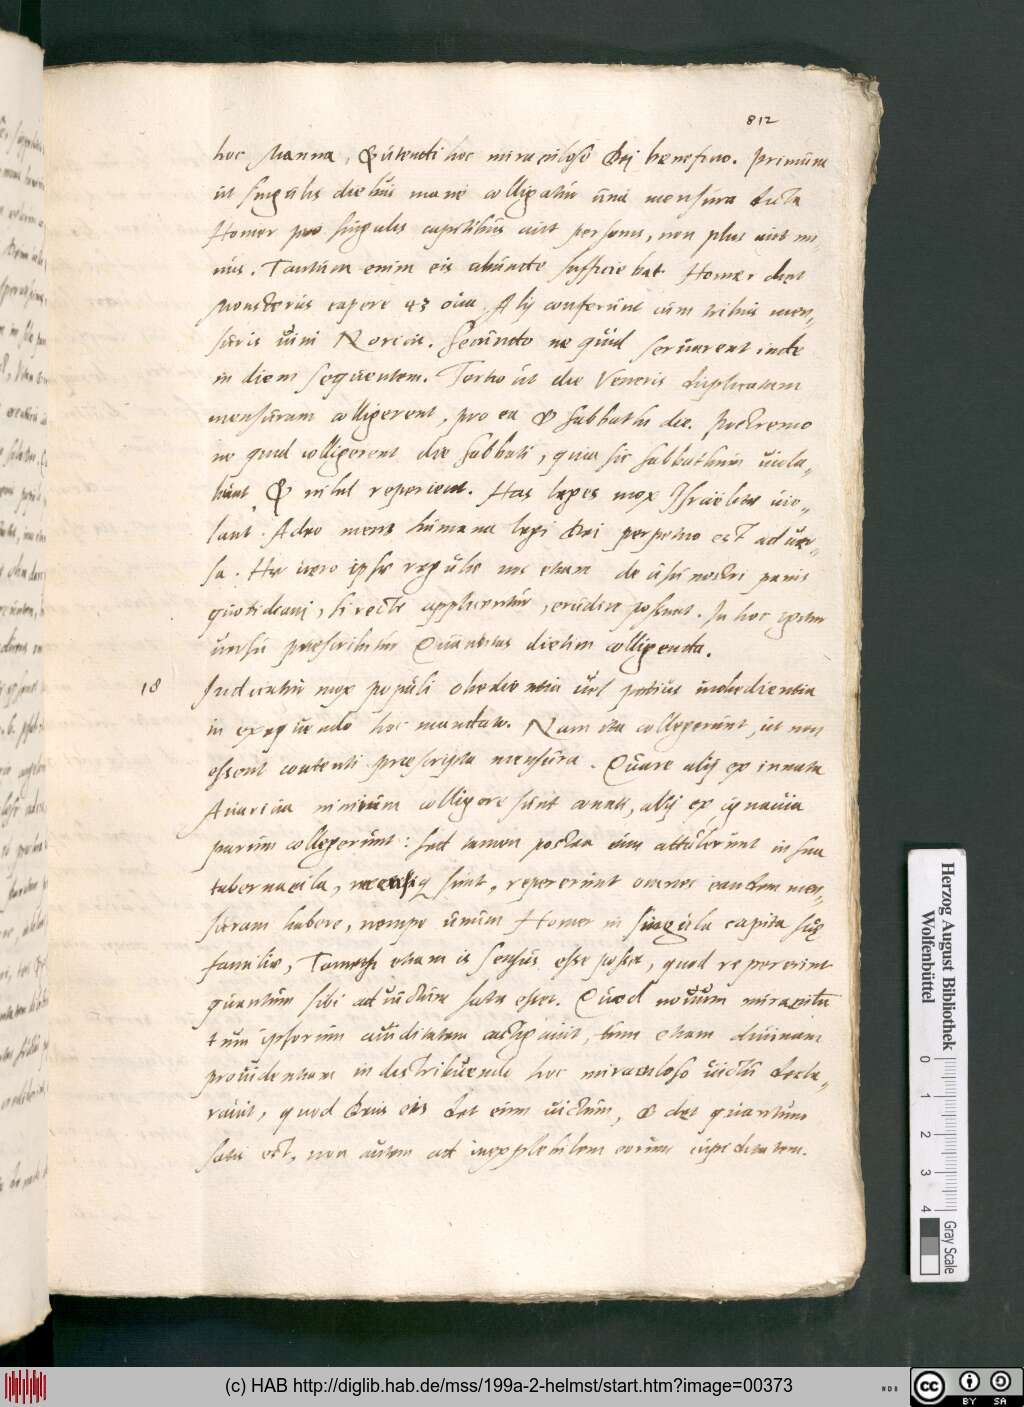 812
hoc Manna, & utendi hoc miraculoso Dei beneficio. Primum
ut singulis diebus mane colligatur una mensura dicta
Homer pro singulis capitibus aut personis, non plus aut mi
nus. Tantum enim eis abunde sufficiebat. Homer dicit
Monsterus capere 43 oua. Alij conferunt cum tribus men„
suris uini Noricis. Secundo ne quid seruarent inde
in diem sequentem. Tertio ut die Veneris duplicatam
mensuram colligerent, pro ea & sabbathi die. Postremo
ne quid colligerent die sabbati, quia sic sabbathum uiola„
bunt & nihil reperient. Has leges mox Israëlitae uio„
lant. Adeo mens humana legi Dei perpetuo est aduer„
sa. Hae uero ipsae regulae nos etiam de usu nostri panis
quotidiani, si recte applicentur, erudire possunt. In hoc igitur
uersu praescribitur Quantitas dietim colligenda.
18 Indicatur mox populi obedientia uel potius inobedientia
in exequendo hoc mandato. Nam ita collegerunt, ut non
essent contenti praescripta mensura. Quare alij ex innata
Auaricia nimium colligere sunt conati, alij ex ignauia
parum collegerunt: sed tamen postea cum attulerunt in sua
tabernacula, sunt, repererunt omnes eandem men„
suram habere, nempe unum Homer in singula capita suę
familiae, Tametsi etiam is sensus esse possit, quod repererint
quantum sibi ad uictum satis esset. Quod nouum miraculum
tum ipsorum auiditatem castigauit, tum etiam diuinam
prouidentiam in distribuendo hoc miraculoso uictu decla„
rauit, quod Deus eis det eum uictum, & det quantum
satis est, non autem ad inexplebilem eorum cupiditatem.
Herzog August Bibliothek
Wolfenbüttel
0 1 2 3 4
Gray Scale
(c) HAB http://diglib.hab.de/mss/199a-2-helmst/start.htm?image=00373
cc BY SA